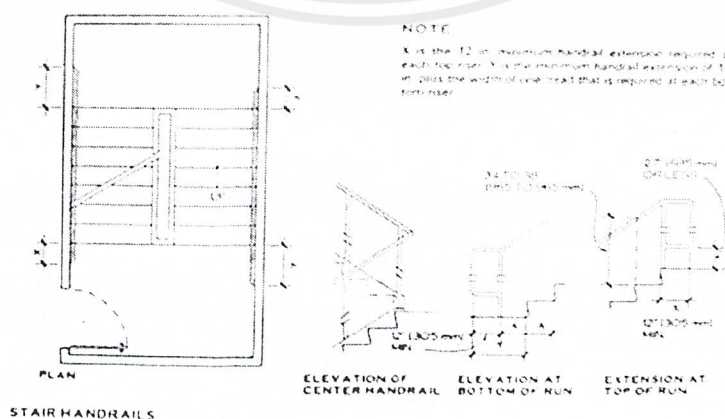 NOTE
X is the 12 in minimum handrail extension required
each top riser. Y is the minimum handrail extension of
in plus the width of one tread that is required at each bot
tom riser
Y
X
X
Y
27" (685 mm)
OR LESS
12" (305 mm)
MIN
X
12" (305 mm)
MIN
PLAN
ELEVATION OF
CENTER HANDRAIL
ELEVATION AT
BOTTOM OF RUN
EXTENSION AT
TOP OF RUN
STAIR HANDRAILS